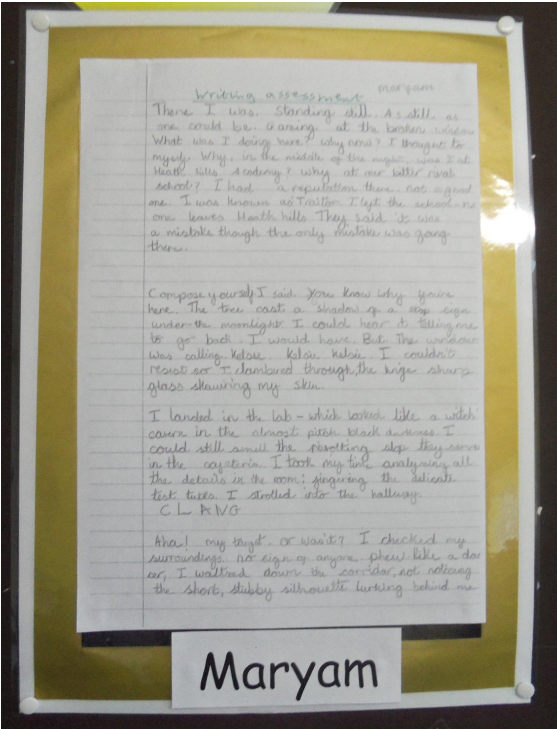 maryam
Writing assessment
There I was. Standing still. As still as
one could be. Gazing at the broken window
What was I doing here? Why now? I thought to
myself. Why, in the middle of the night, was I at
Heath hills Academy? Why at our bitter rival
school? I had a reputation there. not a good
one. I was known as Traitor. I left the school - no
one leaves Heath hills. They said it was
a mistake though the only mistake was going
there.
Compose yourself I said. You know why you're
here. The tree cast a shadow of a stop sign
under the moonlight. I could hear it telling me
to go back. I would have. But the window
was calling. Kelsie. Kelsie. Kelsie. I couldn't
resist so I clambered through, the huge sharp
glass skewiring my skin.
I landed in the lab - which looked like a witch
cavern in the almost pitch black darkness. I
could still smell the revolting slop they serve
in the cafeteria. I took my time analysing all
the details in the room; fingering the delicate
test tubes. I strolled into the hallway.
CLANG
Aha! my target. or wasn't? I checked my
surroundings. no sign of anyone. phew. like a
I waltzed down the corridor, not noticing
the short, stubby silhouette lurking behind me
Maryam